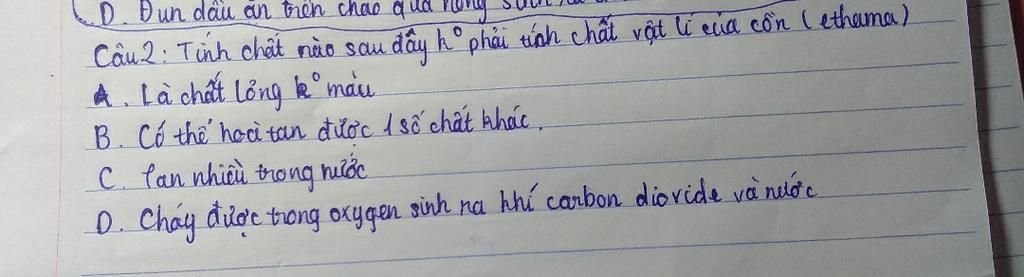 D. Đun dầu ăn trên chảo quá nóng
Câu 2: Tính chất nào sau đây k° phải tính chất vật lí của cồn (ethama)
A. Là chất lỏng k° màu
B. Có thể hoà tan được 1 số chất khác.
C. Tan nhiều trong nước
D. Cháy được trong oxygen sinh ra khí carbon dioxide và nước